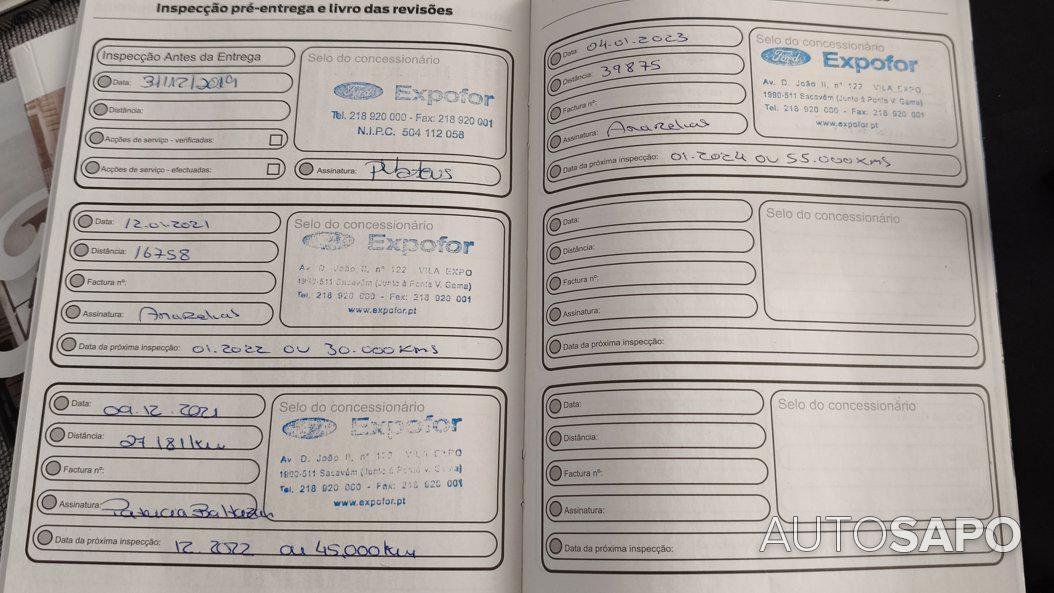 Inspecção pré-entrega e livro das revisões
Inspecção Antes da Entrega
Data: 31/12/2019
Distância:
Acções de serviço - verificadas:
Acções de serviço - efectuadas:
Selo do concessionário
Ford Expofor
Tel. 218 920 000 - Fax: 218 920 001
N.I.P.C. 504 112 058
Assinatura:
Data: 12.01.2021
Distância: 16758
Factura nº:
Assinatura:
Selo do concessionário
Expofor
Av. D. João II, nº 122 VILA EXPO
1990-511 Sacavém (Junto à Ponte V. Gama)
Tel. 218 920 000 - Fax: 218 920 001
www.expofor.pt
Data da próxima inspecção: 01.2022 OU 30.000KMS
Data: 09.12.2021
Distância: 27181km
Factura nº:
Assinatura: Patricia
Selo do concessionário
Expofor
Av. D. João II, nº 122 VILA EXPO
1990-511 Sacavém (Junto à Ponte V. Gama)
Tel. 218 920 000 - Fax: 218 920 001
www.expofor.pt
Data da próxima inspecção: 12.2022 ou 45,000km
Data: 04.01.2023
Distância: 39875
Factura nº:
Assinatura:
Selo do concessionário
Ford Expofor
Av. D. João II, nº 122 VILA EXPO
1990-511 Sacavém (Junto à Ponte V. Gama)
Tel. 218 920 000 - Fax: 218 920 001
www.expofor.pt
Data da próxima inspecção: 01.2024 OU 55.000KMS
Data:
Distância:
Factura nº:
Assinatura:
Selo do concessionário
Data da próxima inspecção:
Data:
Distância:
Factura nº:
Assinatura:
Selo do concessionário
Data da próxima inspecção:
AUTOSAPO